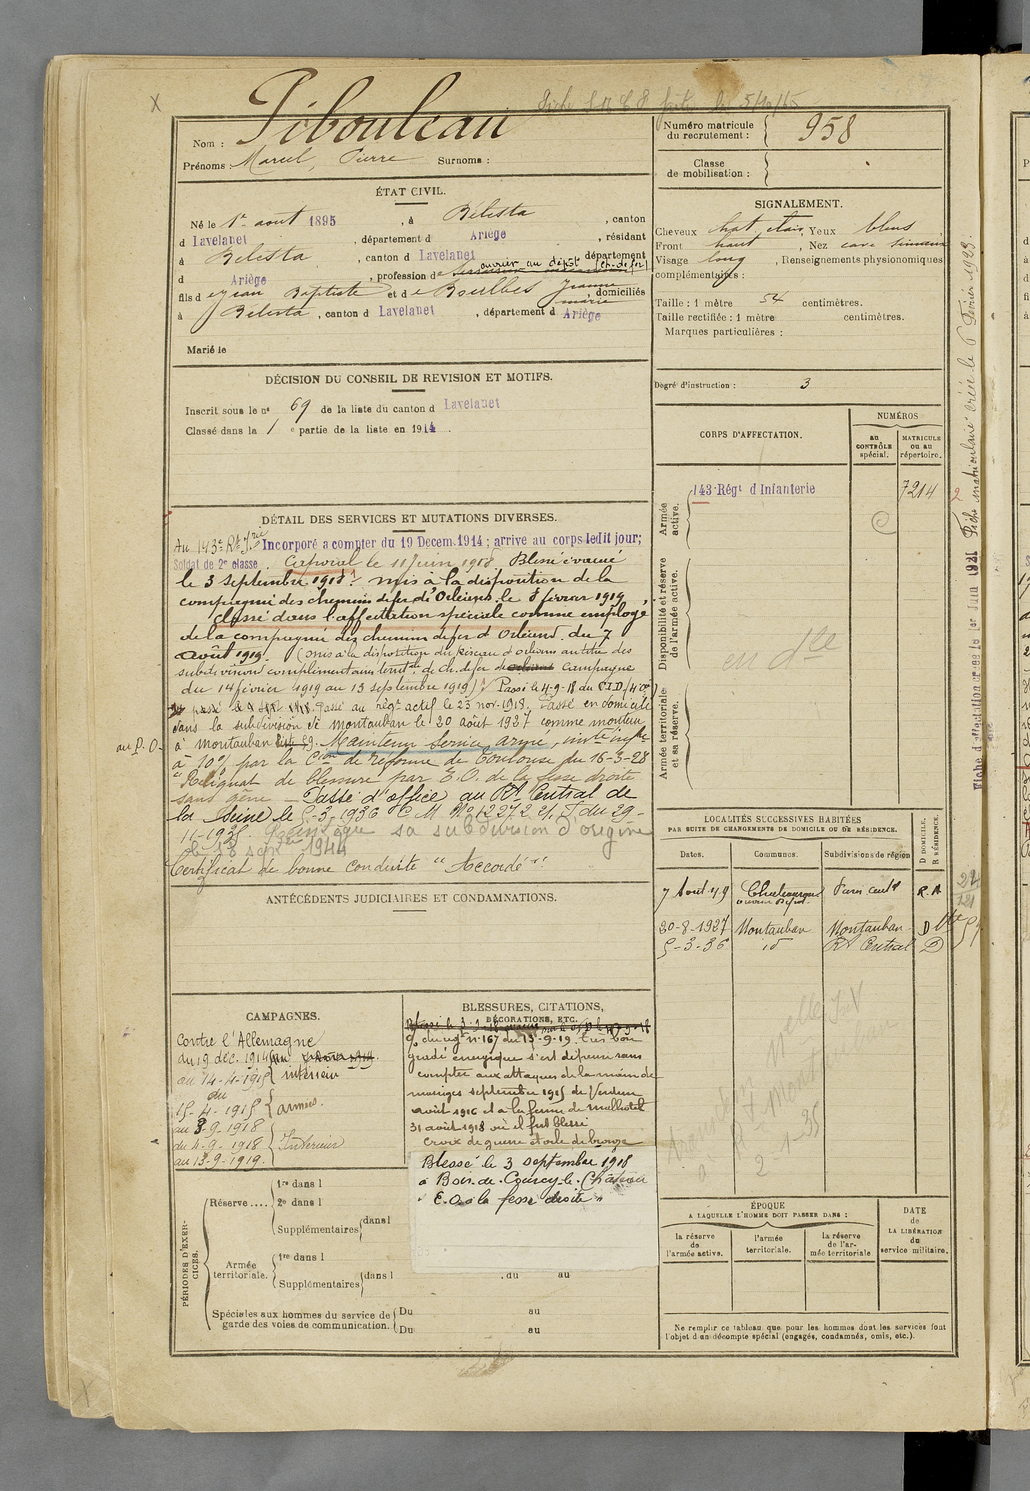 Nom : Pibouleau
Prénoms : Marcel, Pierre Surnoms :
Numéro matricule du recrutement : 958
Classe de mobilisation :
ÉTAT CIVIL.
Né le 1er août 1895, à Bélesta, canton
d Lavelanet, département d Ariège, résidant
à Bélesta, canton d Lavelanet département
d Ariège, profession de ouvrier au dépôt (ch. de fer)
fils de Jean Baptiste et de Bourlbes Jeanne marie, domiciliés
à Bélesta, canton d Lavelanet, département d Ariège
Marié le
SIGNALEMENT.
Cheveux chat. clair, Yeux bleus
Front haut, Nez cave sinueux
Visage long, Renseignements physionomiques
complémentaires :
Taille : 1 mètre 54 centimètres.
Taille rectifiée : 1 mètre centimètres.
Marques particulières :
Degré d'instruction : 3
DÉCISION DU CONSEIL DE REVISION ET MOTIFS.
Inscrit sous le no 69 de la liste du canton d Lavelanet
Classé dans la 1 e partie de la liste en 1914.
CORPS D'AFFECTATION.
NUMÉROS
AU CONTRÔLE spécial.
MATRICULE ou au répertoire.
Armée active.
143 Régt d'Infanterie
7214
Disponibilité et réserve de l'armée active.
Armée territoriale et sa réserve.
DÉTAIL DES SERVICES ET MUTATIONS DIVERSES.
Au 143e Rt Irie Incorporé à compter du 19 Décem. 1914; arrivé au corps ledit jour;
Soldat de 2e classe. Caporal le 11 juin 1918 Blessé évacué
le 3 septembre 1918. mis à la disposition de la
compagnie des chemins de fer d'Orléans le 8 février 1919,
Classé dans l'affectation spéciale comme employé
de la compagnie des chemins de fer d'Orléans. du 7
Août 1919. (mis à la disposition du réseau d'orléans au titre des
subdivisions complémentaires territles de ch. de fer de orléans Campagne
du 14 février 1919 au 13 septembre 1919) Passé le 4-9-18 du C.I.D.
Passé au régt actif le 23 nov. 1918. Passé en domicile
dans la subdivision de Montauban le 20 août 1927 comme monteur
au P.O. à Montauban. Maintenu Service armé, invté infre
à 10% par la Con de réforme de Toulouse du 16-3-28
"Reliquat de blessure par E.O. de la fesse droite
sans gêne - Passé d'office au Rt Central de
la Seine le 5-3-1936 C M No 12272 2/ I du 29-
11-1935. Réintègre sa subdivision d'origine
le 18 sept 1944
Certificat de bonne conduite "Accordé"
ANTÉCÉDENTS JUDICIAIRES ET CONDAMNATIONS.
LOCALITÉS SUCCESSIVES HABITÉES
PAR SUITE DE CHANGEMENTS DE DOMICILE OU DE RÉSIDENCE.
D DOMICILE, R RÉSIDENCE.
Dates. Communes. Subdivisions de région
7 Août 19 ouvrier Dépôt. R. A
20-8-1927 Montauban Montauban D
5-3-36 id Rt Central D
CAMPAGNES.
Contre l'Allemagne
du 19 déc. 1914
au 14-4-1915 intérieur
du
15-4-1915 armées.
au 3-9-1918
du 4-9-1918 Intérieur
au 13-9-1919.
BLESSURES, CITATIONS,
DÉCORATIONS, ETC.
O/ du régt n. 167 du 15-9-19. Très bon
gradé énergique s'est dépensé sans
compter aux attaques de la main de
massiges septembre 1915 de Verdun
août 1916 et à la ferme de malhotel
31 août 1918 où il fut blessé
Croix de guerre étoile de bronze
Blessé le 3 septembre 1918
à Bois de Coucy-le-Château
" E.O. à la fesse droite "
PÉRIODES D'EXERCICES.
Réserve .... 1re dans l
2e dans l
Supplémentaires dans l
Armée territoriale. 1re dans l
Supplémentaires dans l , du au
Spéciales aux hommes du service de garde des voies de communication. Du au
Du au
ÉPOQUE
A LAQUELLE L'HOMME DOIT PASSER DANS :
la réserve de l'armée active.
l'armée territoriale.
la réserve de l'armée territoriale
DATE de LA LIBÉRATION du service militaire.
Ne remplir ce tableau que pour les hommes dont les services font
l'objet d'un décompte spécial (engagés, condamnés, omis, etc.).
Fiche matriculaire créée le 6 Février 1923.
Fiche d'affectation créée le 1er Juin 1921